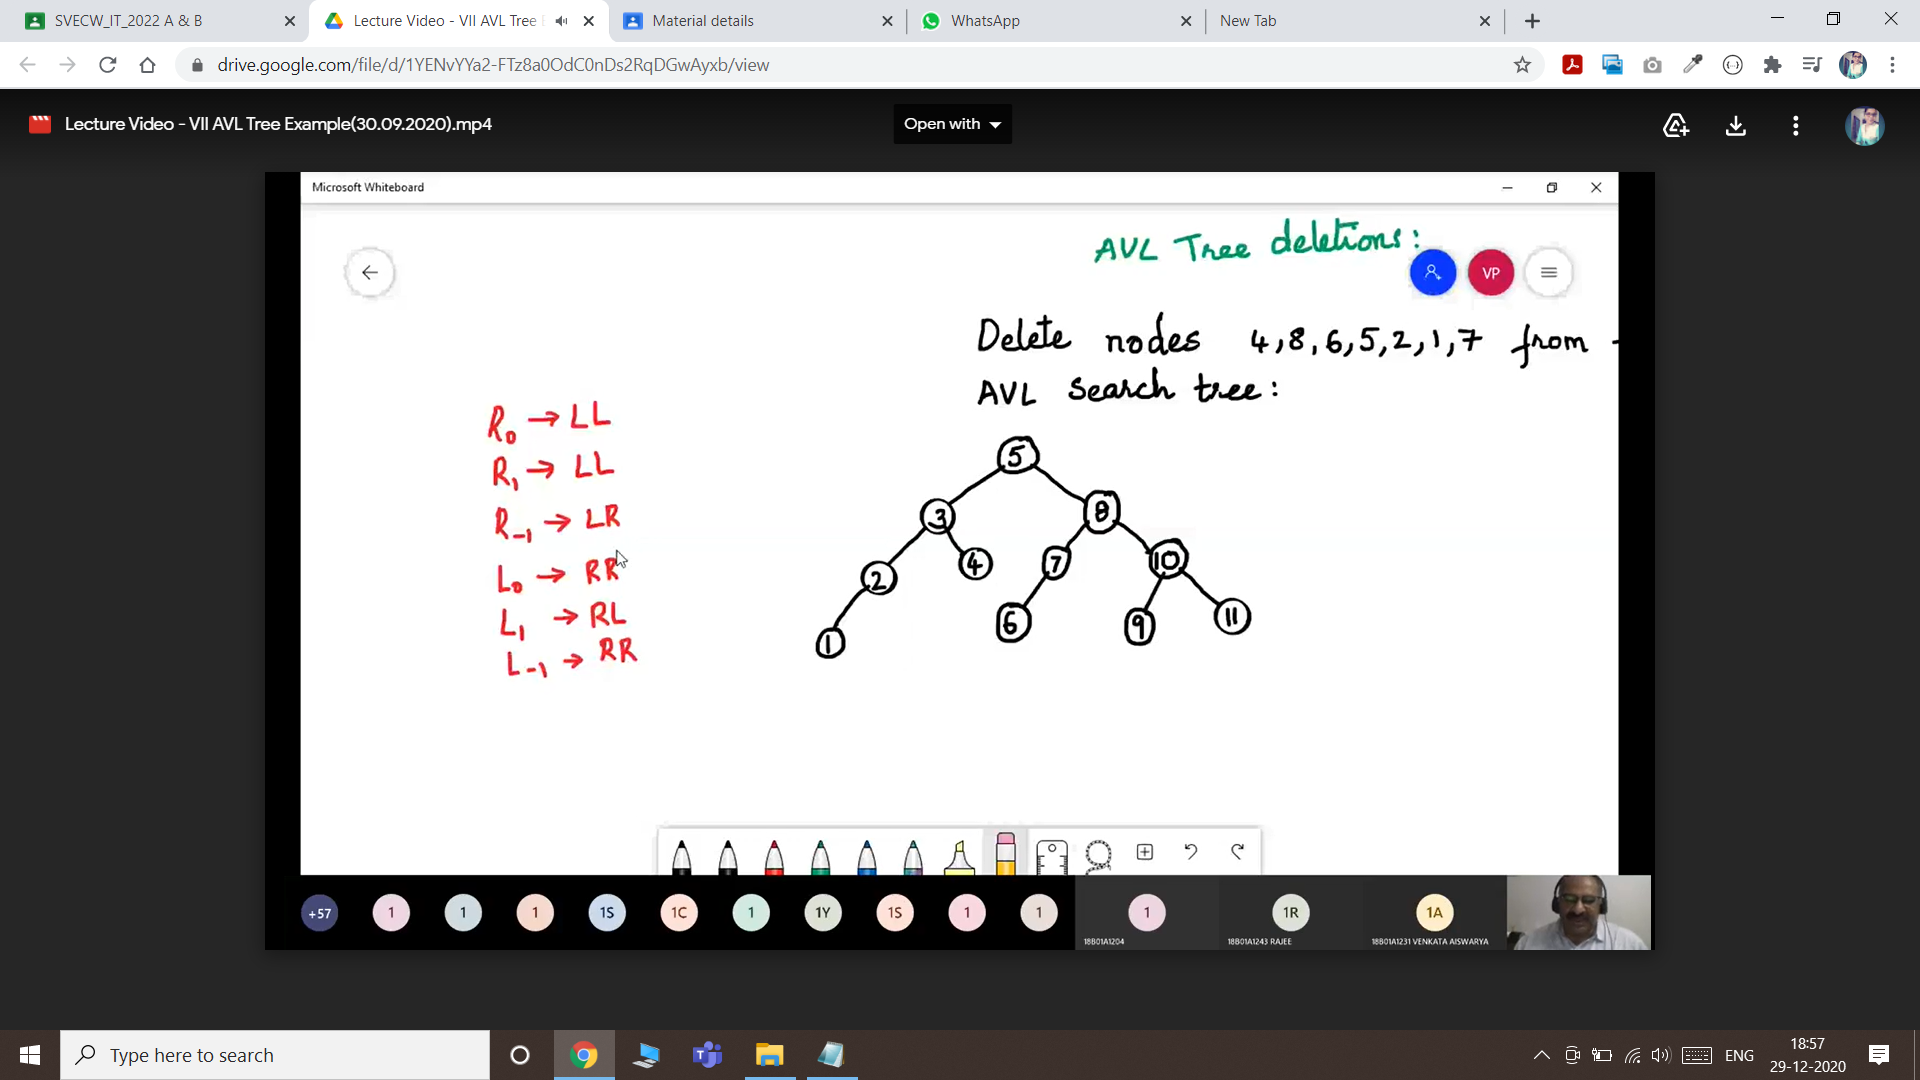 SVECW_IT_2022 A & B
Lecture Video - VII AVL Tree
Material details
WhatsApp
New Tab
drive.google.com/file/d/1YENvYYa2-FTz8a0OdC0nDs2RqDGwAyxb/view
Lecture Video - VII AVL Tree Example(30.09.2020).mp4
Open with
Microsoft Whiteboard
AVL Tree deletions:
VP
Delete nodes 4,8,6,5,2,1,7 from
AVL Search tree:
R0 → LL
R1 → LL
R-1 → LR
L0 → RR
L1 → RL
L-1 → RR
5
3 8
2 4 7 10
1 6 9 11
+57 1 1 1 1S 1C 1 1Y 1S 1 1 1 1R 1A
18B01A1204
18B01A1243 RAJEE
18B01A1231 VENKATA AISWARYA
Type here to search
ENG
18:57
29-12-2020